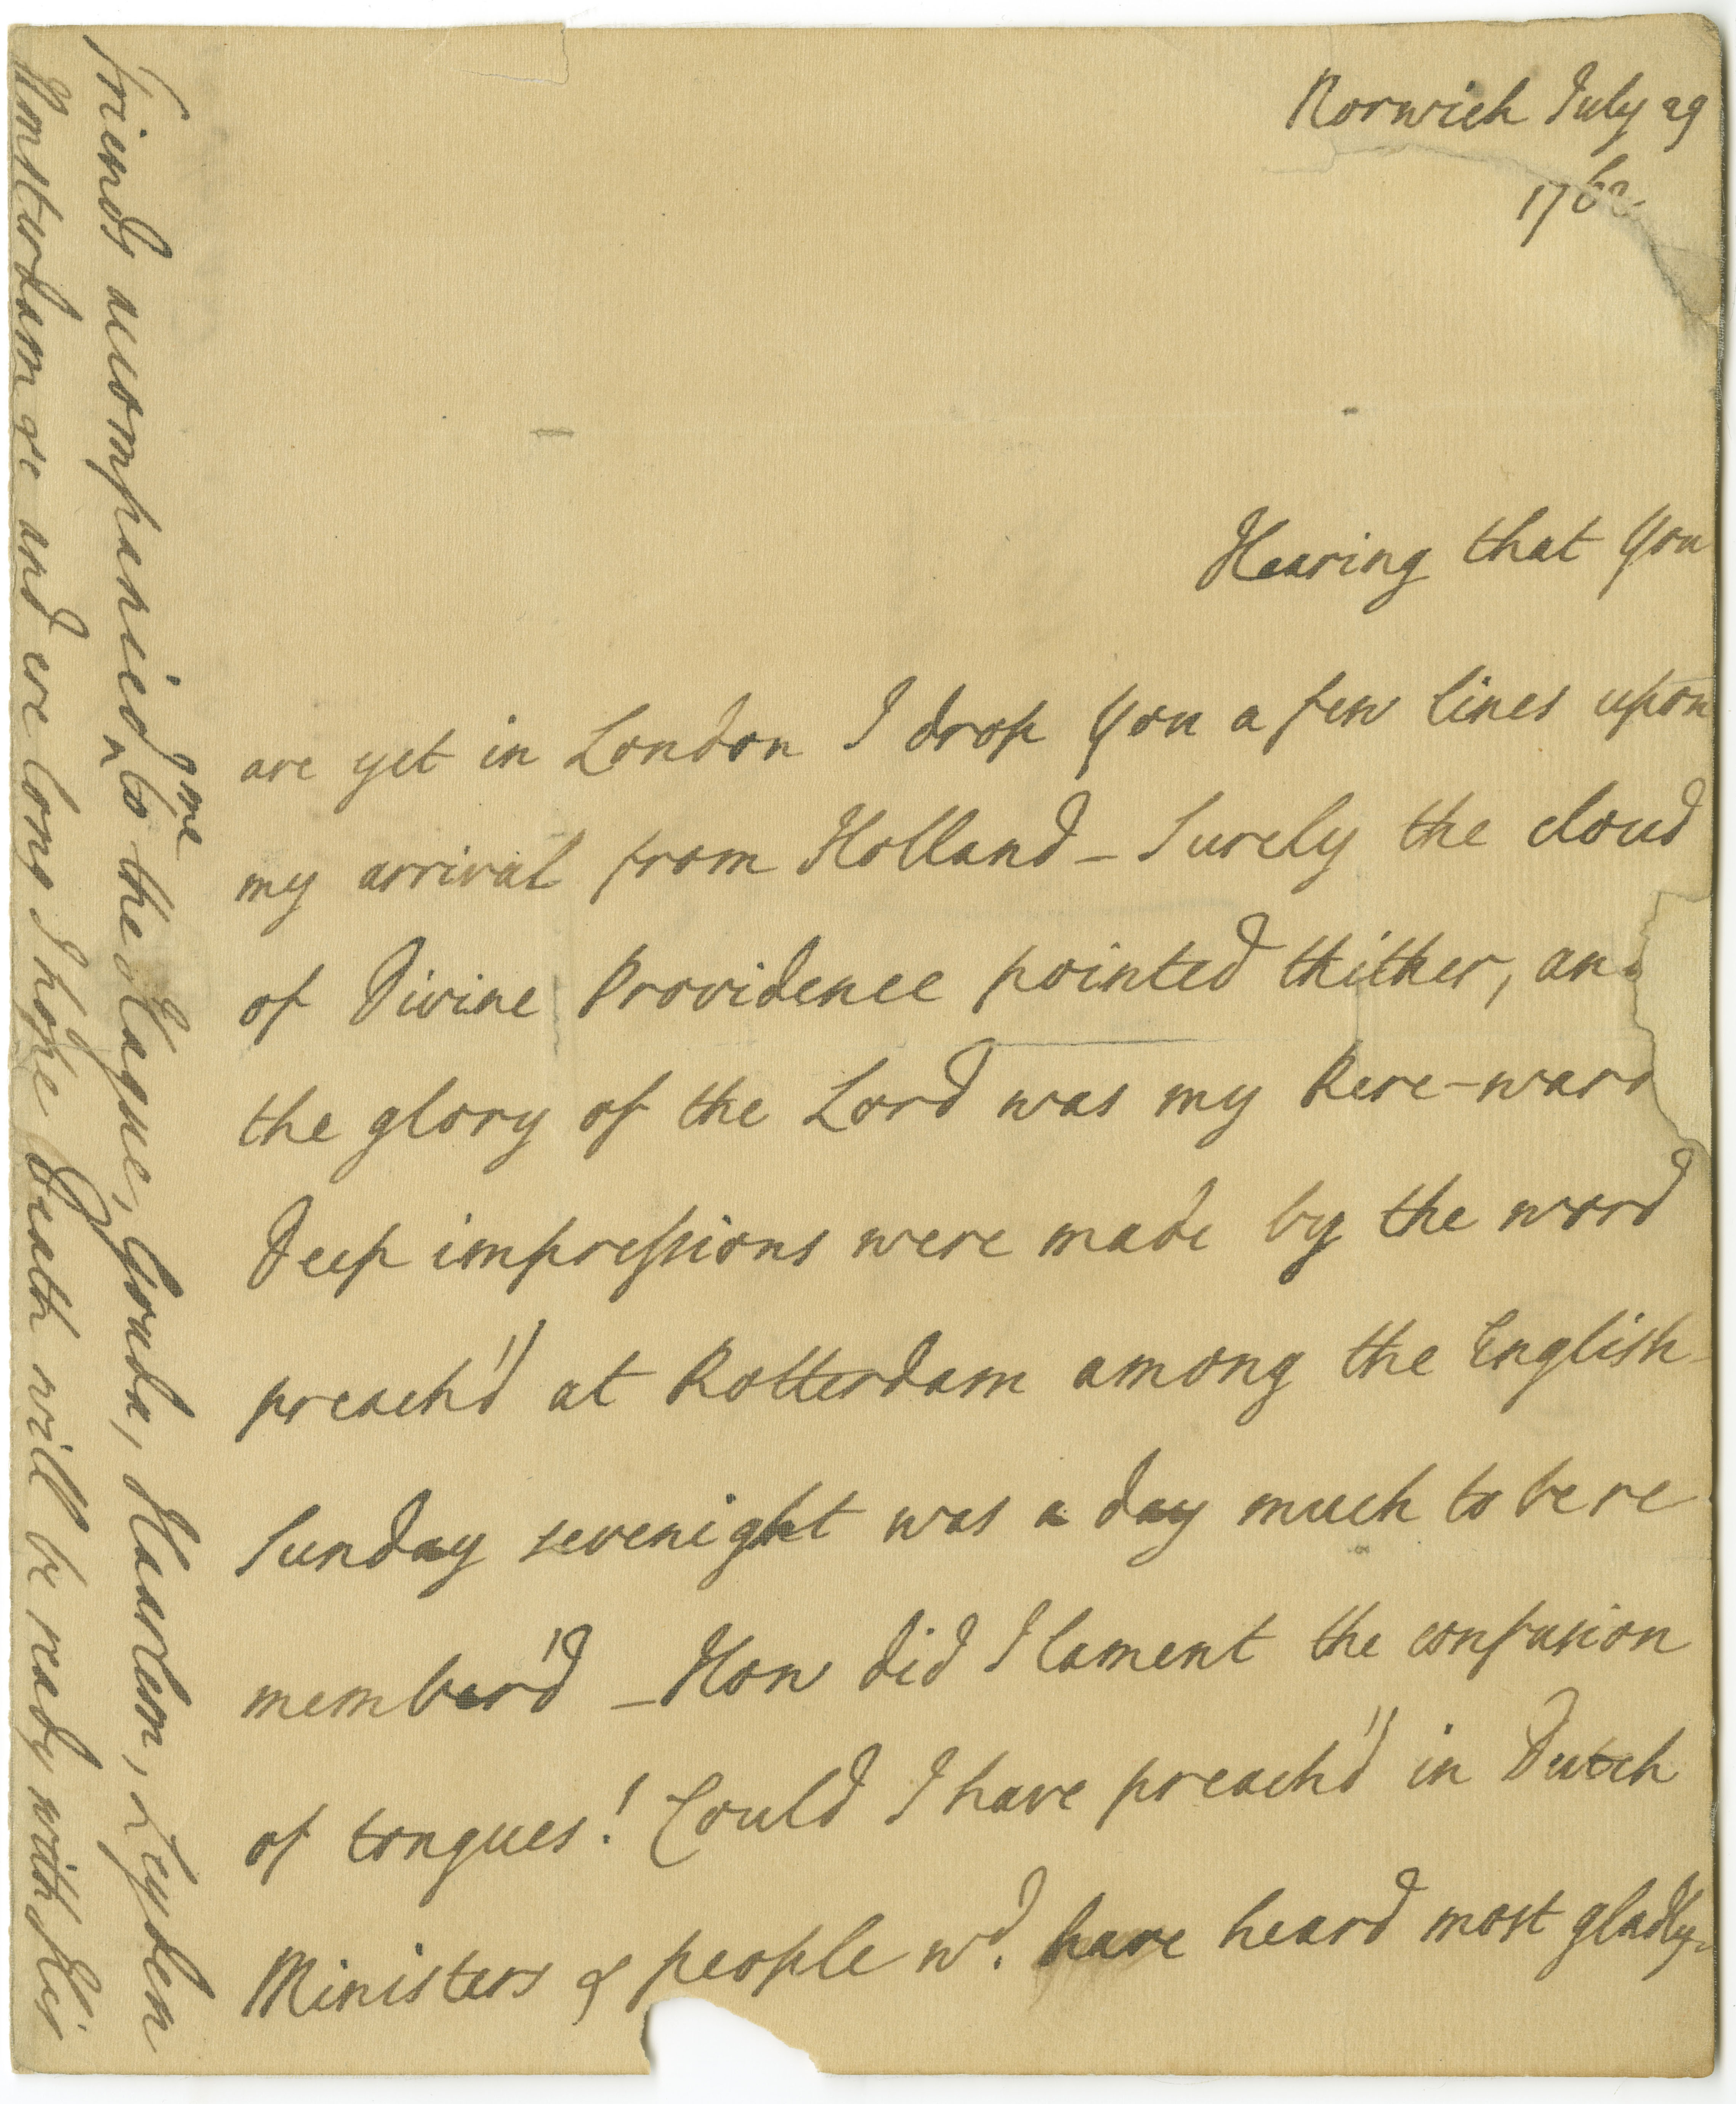 Norwich July 29
1762.
Hearing that You
are yet in London I drop You a few lines upon
my arrival from Holland – Surely the cloud
of Divine Providence pointed thither, and
the glory of the Lord was my Rere-ward
Deep impressions were made by the word
preach'd at Rotterdam among the English
Sunday sevenight was a day much to be re
member'd – How did I lament the confusion
of tongues! Could I have preach'd in Dutch
Ministers & people wd. have heard most gladly.
Friends accompanied ^me to the Hague, Gouda, Haarlem, Leyden
Amsturdam &c and ere long I hope Death will be ready with his